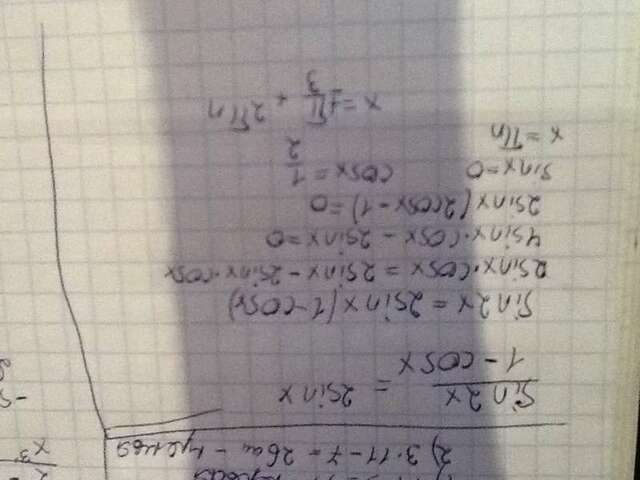 2) 3·11-7=26
sin2x / 1-cosx = 2sinx
sin2x = 2sinx(1-cosx)
2sinx·cosx = 2sinx - 2sinx·cosx
4sinx·cosx - 2sinx=0
2sinx(2cosx-1)=0
sinx=0 cosx = 1/2
x=πn
x=±π/3 + 2πn